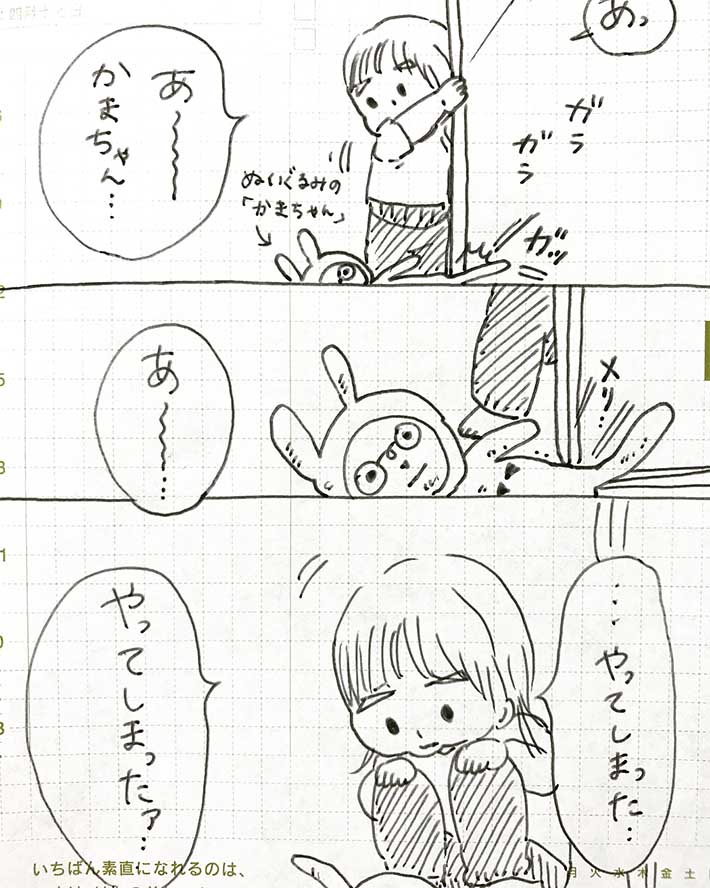 あっ
ガラ
ガラ
ガッ
あ〜〜〜
かまちゃん…
ぬいぐるみの
「かまちゃん」
メリ…
あ〜〜〜…
…やってしまった…
やってしまったァ…
いちばん素直になれるのは、
月火水木金土